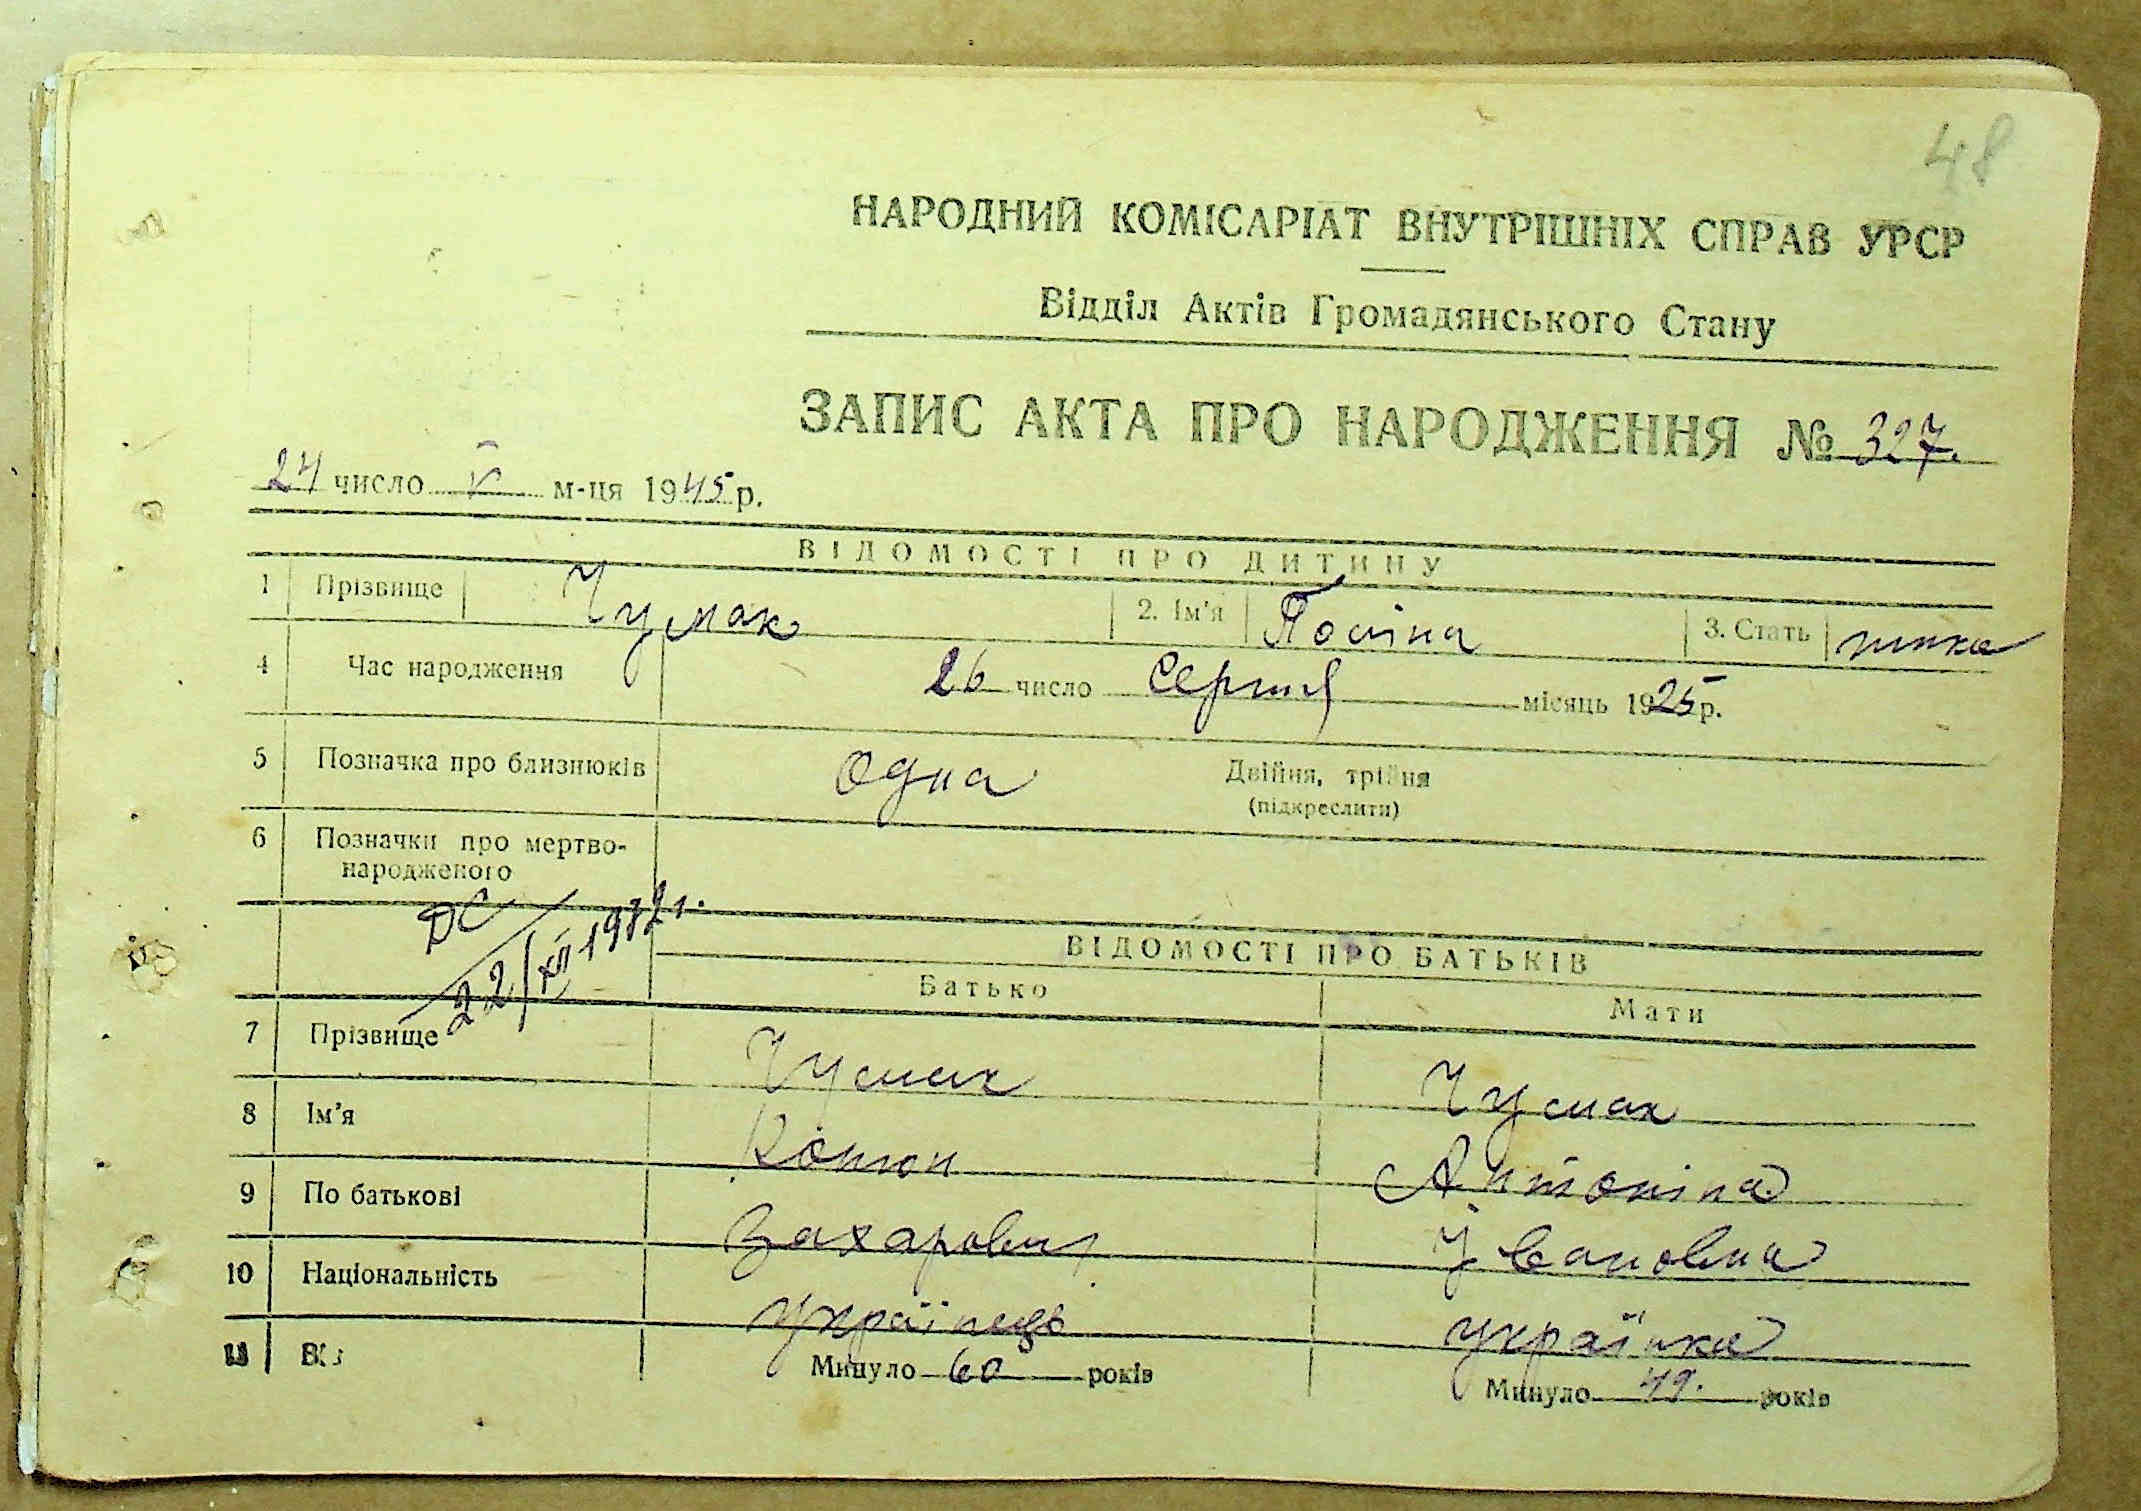 48
НАРОДНИЙ КОМІСАРІАТ ВНУТРІШНІХ СПРАВ УРСР
Відділ Актів Громадянського Стану
ЗАПИС АКТА ПРО НАРОДЖЕННЯ № 327.
24 число V м-ця 1945 р.
ВІДОМОСТІ ПРО ДИТИНУ
1 Прізвище Чумак 2. Ім'я Поліна 3. Стать
4 Час народження 26 число Серпня місяць 1925 р.
5 Позначка про близнюків одна Двійня, трійня
(підкреслити)
6 Позначки про мертво-
народженого
ДС
22/XII 1972 г.
ВІДОМОСТІ ПРО БАТЬКІВ
Батько Мати
7 Прізвище Чумак Чумак
8 Ім'я Антоніна
9 По батькові Захарович Івановна
10 Національність українець українка
11 Вік Минуло 60 років Минуло 49. років